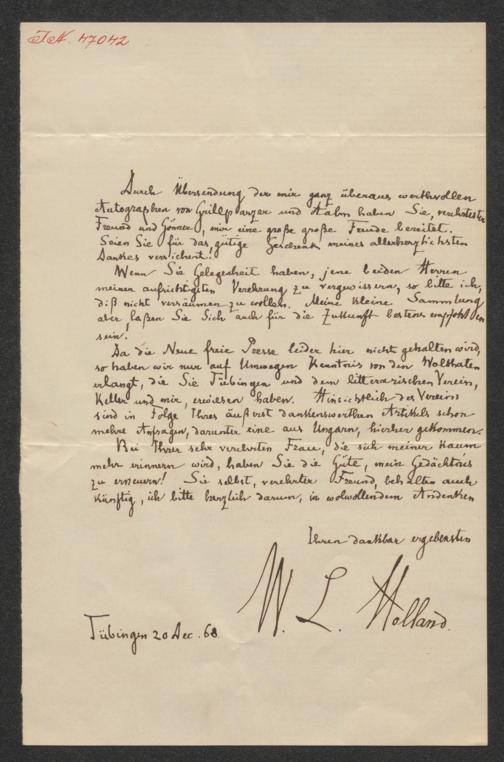 J.N. 47042
Durch Übersendung der mir ganz überaus werthvollen
Autographen von Grillparzer und Halm haben Sie, verehrtester
Freund und Gönner, mir eine große große Freude bereitet.
Seien Sie für das gütige Geschenk meines allerherzlichsten
Dankes versichert!
Wenn Sie Gelegenheit haben, jene beiden Herren
meiner aufrichtigsten Verehrung zu vergewissern, so bitte ich,
diß nicht versäumen zu wollen. Meine kleine Sammlung
aber laßen Sie Sich auch für die Zukunft bestens empfohlen
sein.
Da die Neue freie Presse leider hier nicht gehalten wird,
so haben wir nur auf Umwegen Kenntnis von den Wolthaten
erlangt, die Sie Tübingen und dem litterarischen Verein,
Keller und mir, erwiesen haben. Hinsichtlich des Vereins
sind in Folge Ihres äußerst dankenswerthen Artikels schon
mehre Anfragen, darunter eine aus Ungarn, hierher gekommen.
Bei Ihrer sehr verehrten Frau, die sich meiner kaum
mehr erinnern wird, haben Sie die Güte, mein Gedächtnis
zu erneuern! Sie selbst, verehrter Freund, behalten auch
künftig, ich bitte herzlich darum, in wolwollendem Andenken
Ihren dankbar ergebensten
W. L. Holland.
Tübingen 20 Dec. 68